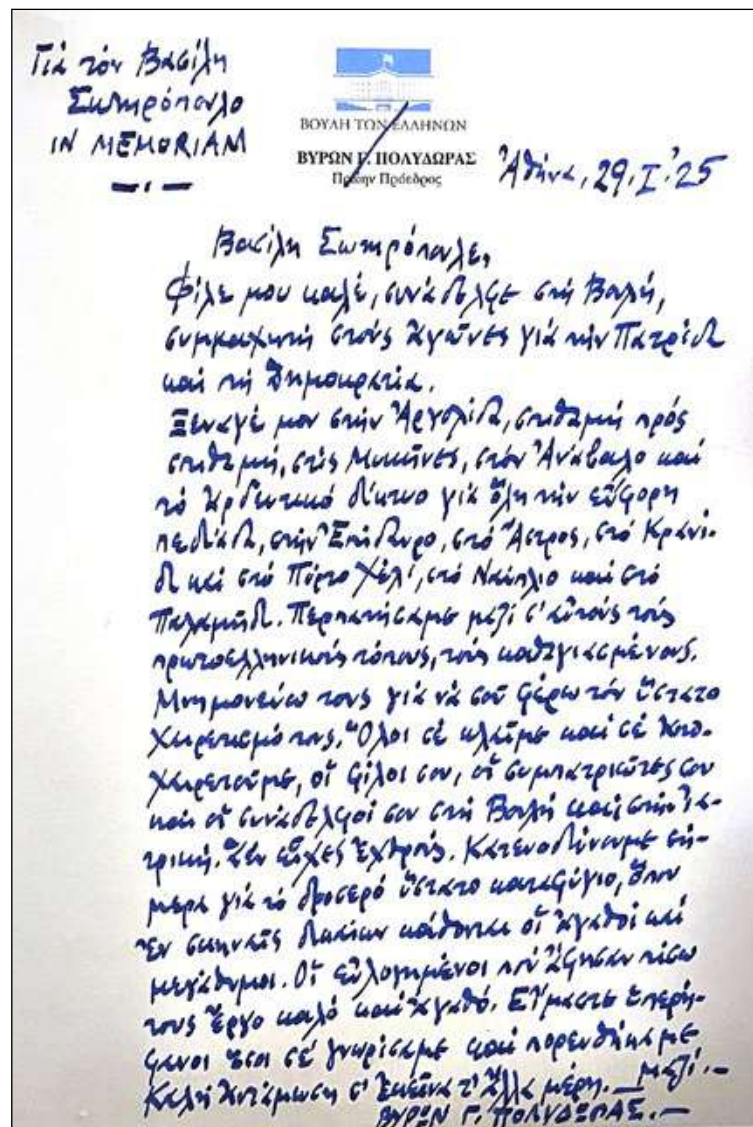 Γιὰ τὸν Βασίλη
Σωτηρόπουλο
IN MEMORIAM
ΒΟΥΛΗ ΤΩΝ ΕΛΛΗΝΩΝ
ΒΥΡΩΝ Γ. ΠΟΛΥΔΩΡΑΣ
Πρώην Πρόεδρος
Ἀθήνα, 29.I.'25
Βασίλη Σωτηρόπουλε,
Φίλε μου καλέ, συνάδελφε στὴ Βουλή,
συμμαχητὴ στοὺς ἀγῶνες γιὰ τὴν Πατρίδα
καὶ τὴ Δημοκρατία.
Ξεναγέ μου στὴν Ἀργολίδα, σπιθαμὴ πρὸς
σπιθαμή, στὶς Μυκῆνες, στὸν Ἀνάβαλο καὶ
τὸ ἀρδευτικὸ δίκτυο γιὰ ὅλη τὴν εὔφορη
πεδιάδα, στὴν Ἐπίδαυρο, στὸ Ἄστρος, στὸ Κρανί-
δι καὶ στὸ Πόρτο Χέλι, στὸ Ναύπλιο καὶ στὸ
Παλαμήδι. Περπατήσαμε μαζὶ σ' αὐτοὺς τοὺς
πρωτοελληνικοὺς τόπους, τοὺς καθαγιασμένους.
Μνημονεύω τους γιὰ νὰ σοῦ φέρω τὸν ὕστατο
χαιρετισμό τους. Ὅλοι σὲ κλαῖμε καὶ σὲ ἀπο-
χαιρετοῦμε, οἱ φίλοι σου, οἱ συμπατριῶτες σου
καὶ οἱ συνάδελφοί σου στὴ Βουλὴ καὶ στὴν Ἰα-
τρική. Δὲν εἶχες ἐχθρούς. Κατευοδώνουμε σή-
μερα γιὰ τὸ δροσερὸ ὕστατο καταφύγιο, ὅπου
ἐν σκηναῖς δικαίων κάθονται οἱ ἀγαθοὶ καὶ
μεγάθυμοι. Οἱ εὐλογημένοι ποὺ ἄφησαν πίσω
τους ἔργο καλὸ καὶ ἀγαθό. Εἴμαστε ὑπερή-
φανοι ὅσοι σὲ γνωρίσαμε καὶ πορευθήκαμε
μαζί.
Καλὴ ἀντάμωση σ' ἐκεῖνα τ' ἄλλα μέρη.
ΒΥΡΩΝ Γ. ΠΟΛΥΔΩΡΑΣ.